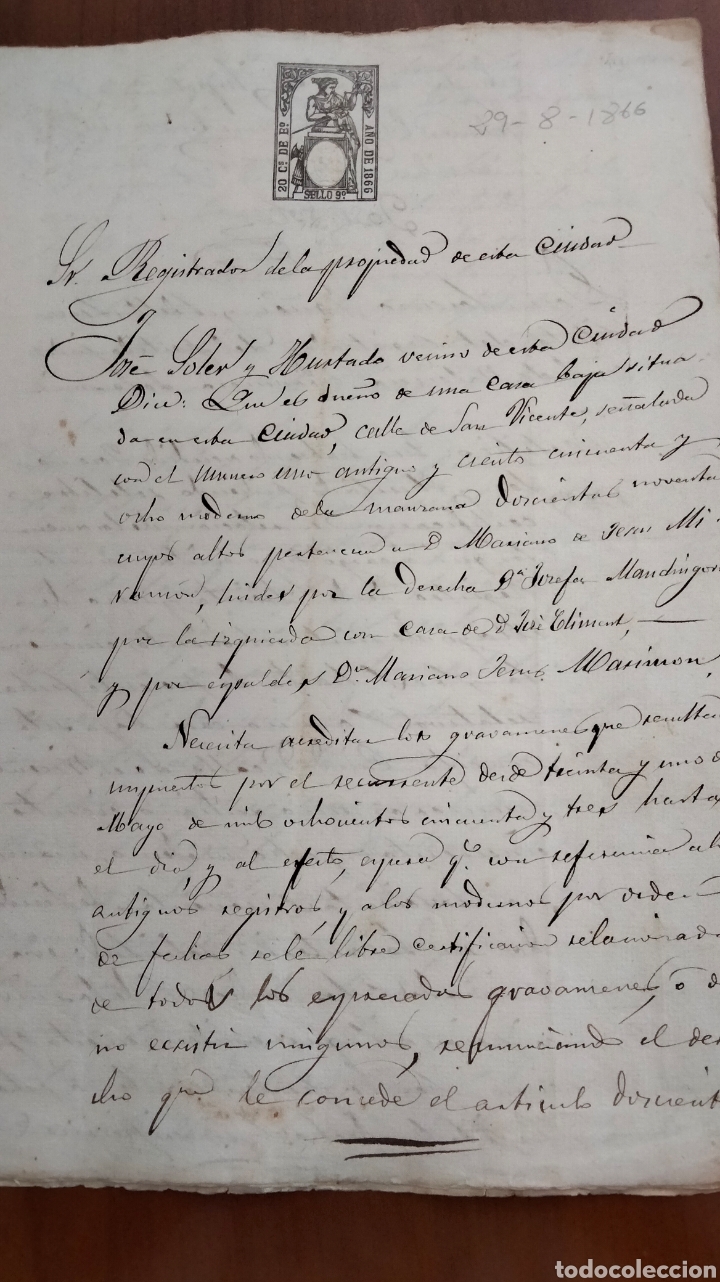 20 Cs DE Eo
AÑO DE 1866
SELLO 9º
29-8-1866
Sr. Registrador de la propiedad de esta Ciudad
José Soler y Hurtado vecino de esta Ciudad
Dice: Que es dueño de una casa baja situa
da en esta Ciudad, calle de San Vicente, señalada
con el numero uno antiguo y ciento cincuenta y
ocho moderno de la manzana doscientas noventa
cuyos altos pertenecen a D. Mariano de Jesus Mi
ramón, lindes por la derecha Dª Josefa
por la izquierda con casa de D. José Climent,
y por espaldas Dn Mariano Jesus
Necesita acreditar los gravamenes que resulten
impuestos por el recurrente desde treinta y uno de
Mayo de mil ochocientos cincuenta y tres hasta
el dia, y al efecto, espera q.e con referencia a los
antiguos registros, y a los modernos por orden
de fechas se le libre certificacion relacionada
de todos los espresados gravamenes, ó de
no ecsistir ningunos, renunciando el dere
cho que le concede el articulo doscient
todocoleccion